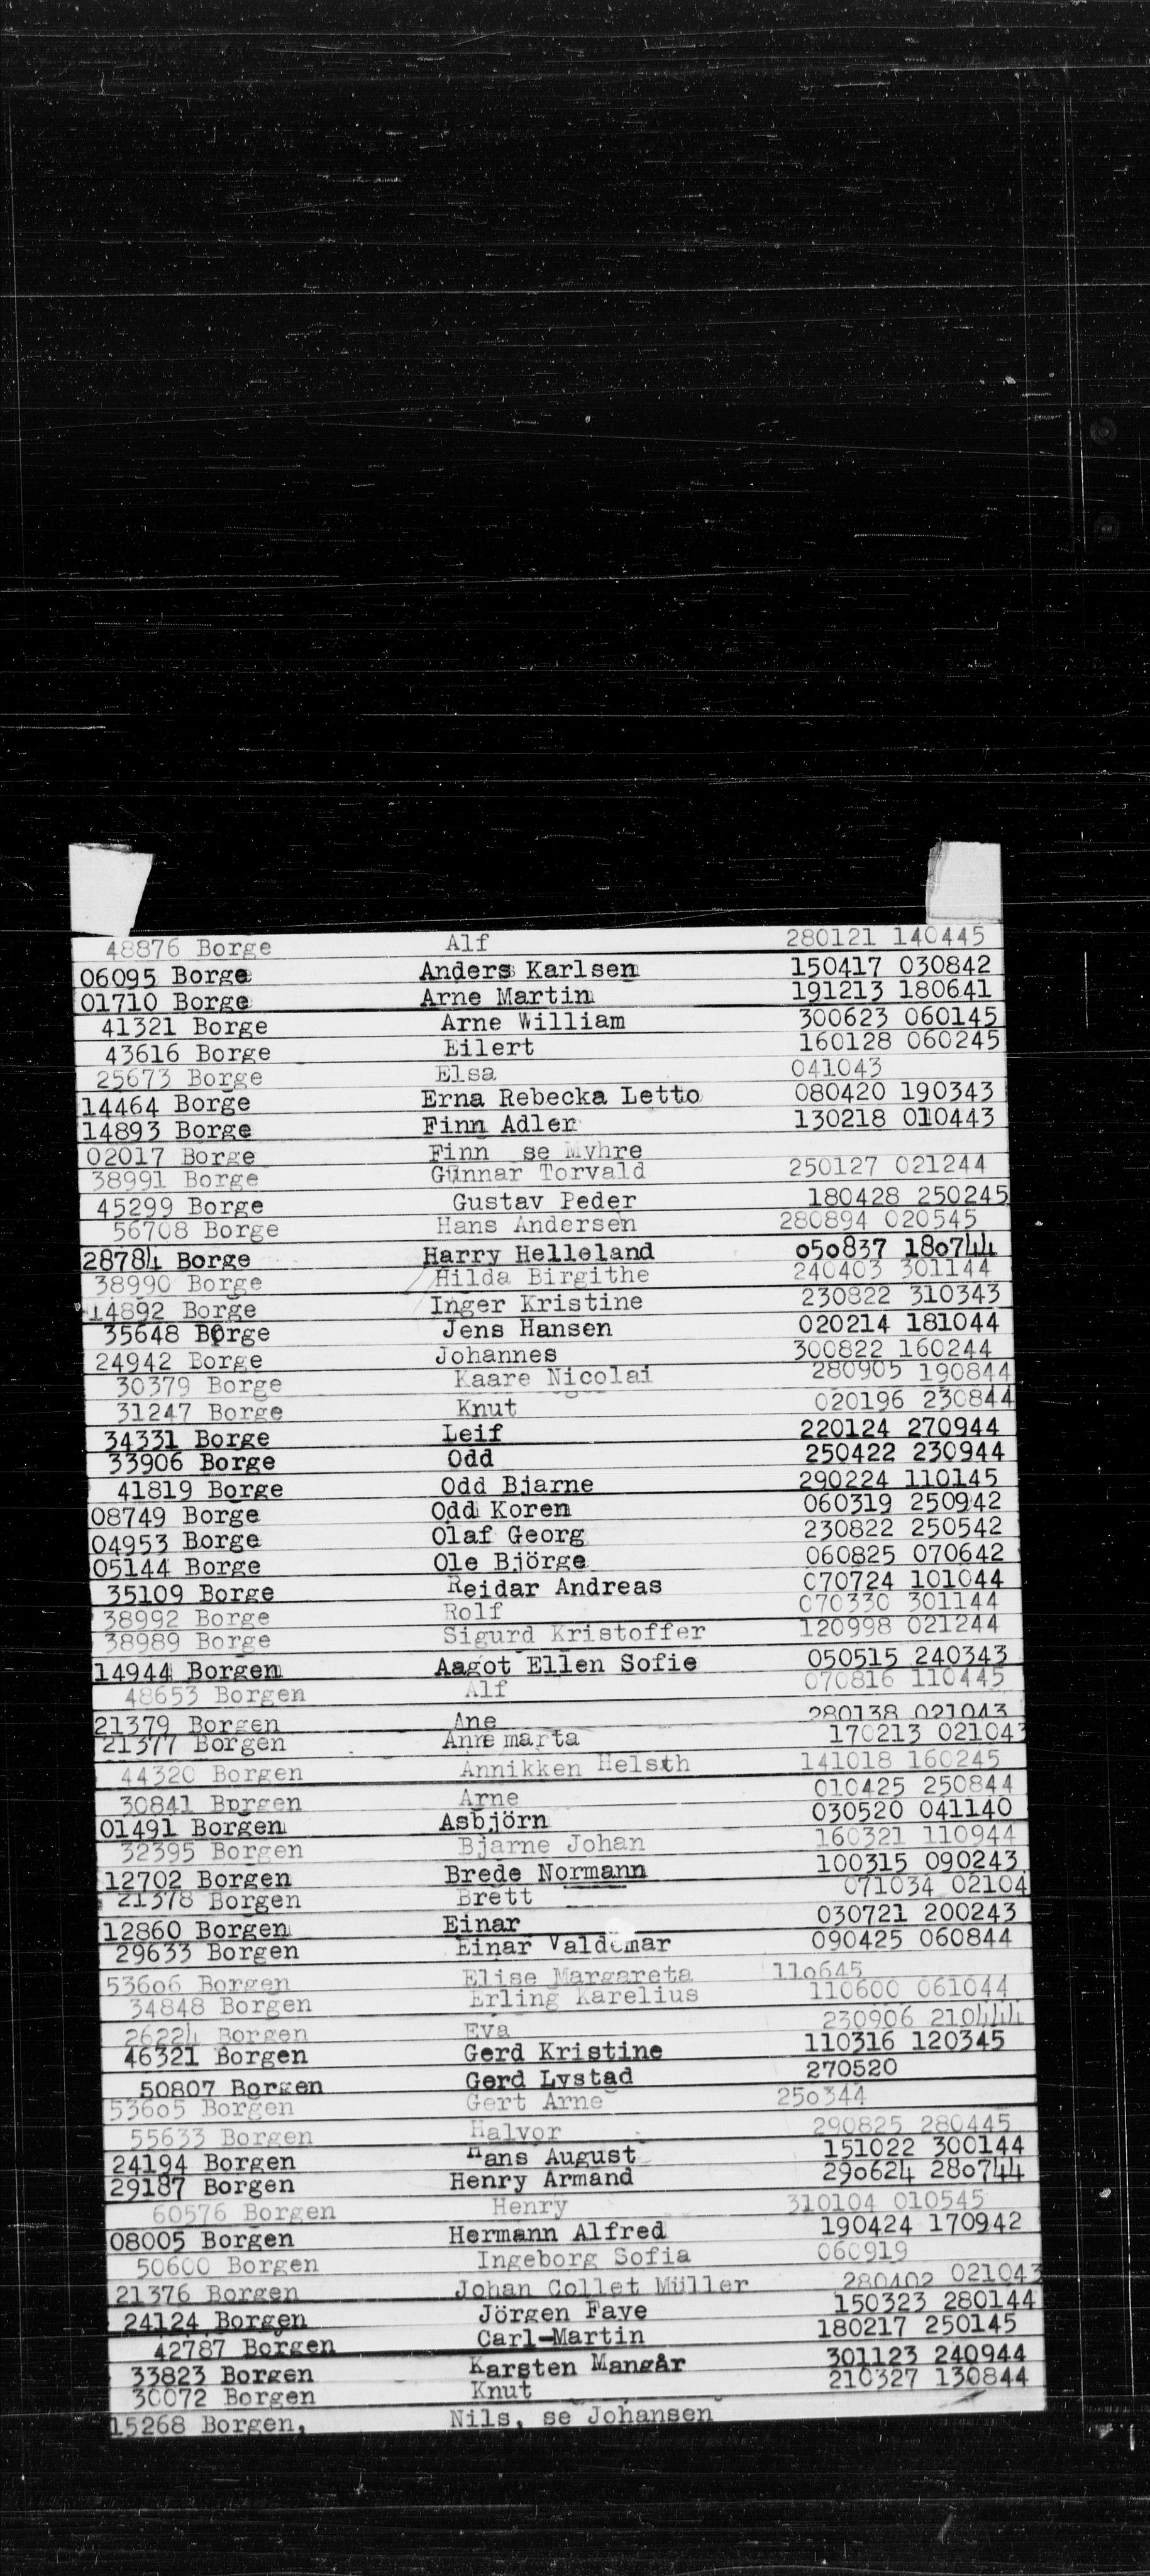 48876 Borge Alf 280121 140445
06095 Borge Anders Karlsen 150417 030842
01710 Borge Arne Martin 191213 180641
41321 Borge Arne William 300623 060145
43616 Borge Eilert 160128 060245
25673 Borge Elsa 041043
14464 Borge Erna Rebecka Letto 080420 190343
14893 Borge Finn Adler 130218 010443
02017 Borge Finn se Myhre
38991 Borge Gunnar Torvald 250127 021244
45299 Borge Gustav Peder 180428 250245
56708 Borge Hans Andersen 280894 020545
28784 Borge Harry Helleland 050837 180744
38990 Borge Hilda Birgithe 240403 301144
14892 Borge Inger Kristine 230822 310343
35648 Borge Jens Hansen 020214 181044
24942 Borge Johannes 300822 160244
30379 Borge Kaare Nicolai 280905 190844
31247 Borge Knut 020196 230844
34331 Borge Leif 220124 270944
33906 Borge Odd 250422 230944
41819 Borge Odd Bjarne 290224 110145
08749 Borge Odd Koren 060319 250942
04953 Borge Olaf Georg 230822 250542
05144 Borge Ole Björge 060825 070642
35109 Borge Reidar Andreas 070724 101044
38992 Borge Rolf 070330 301144
38989 Borge Sigurd Kristoffer 120998 021244
14944 Borgen Aagot Ellen Sofie 050515 240343
48653 Borgen Alf 070816 110445
21379 Borgen Ane 280138 021043
21377 Borgen Anne marta 170213 021043
44320 Borgen Annikken Helsth 141018 160245
30841 Borgen Arne 010425 250844
01491 Borgen Asbjörn 030520 041140
32395 Borgen Bjarne Johan 160321 110944
12702 Borgen Brede Normann 100315 090243
21378 Borgen Brett 071034 02104
12860 Borgen Einar 030721 200243
29633 Borgen Einar Valdemar 090425 060844
53606 Borgen Elise Margareta 110645
34848 Borgen Erling Karelius 110600 061044
26224 Borgen Eva 230906 210444
46321 Borgen Gerd Kristine 110316 120345
50807 Borgen Gerd Lystad 270520
53605 Borgen Gert Arne 250344
55633 Borgen Halvor 290825 280445
24194 Borgen Hans August 151022 300144
29187 Borgen Henry Armand 290624 280744
60576 Borgen Henry 310104 010545
08005 Borgen Hermann Alfred 190424 170942
50600 Borgen Ingeborg Sofia 060919
21376 Borgen Johan Collet Müller 280402 021043
24124 Borgen Jörgen Faye 150323 280144
42787 Borgen Carl-Martin 180217 250145
33823 Borgen Karsten Mangår 301123 240944
30072 Borgen Knut 210327 130844
15268 Borgen, Nils, se Johansen